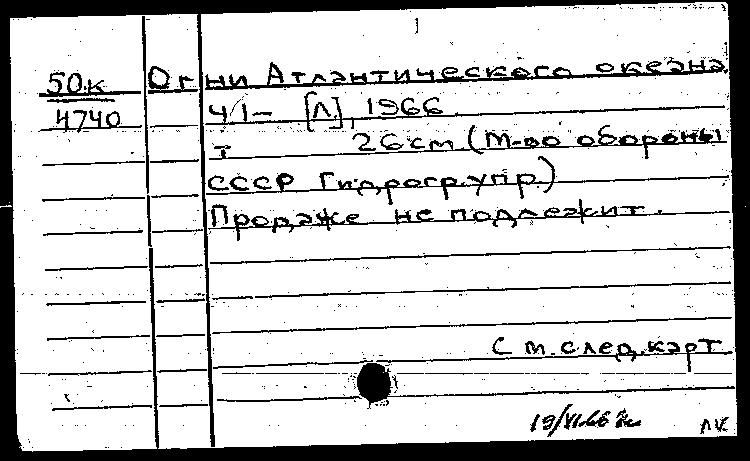 50к Огни Атлантического океана.
4740 Ч 1- [Л], 1966
т 26 см (М-во обороны
СССР Гидрогр.упр.)
Продаже не подлежит.
См. след. карт.
19/VI.66
ЛК